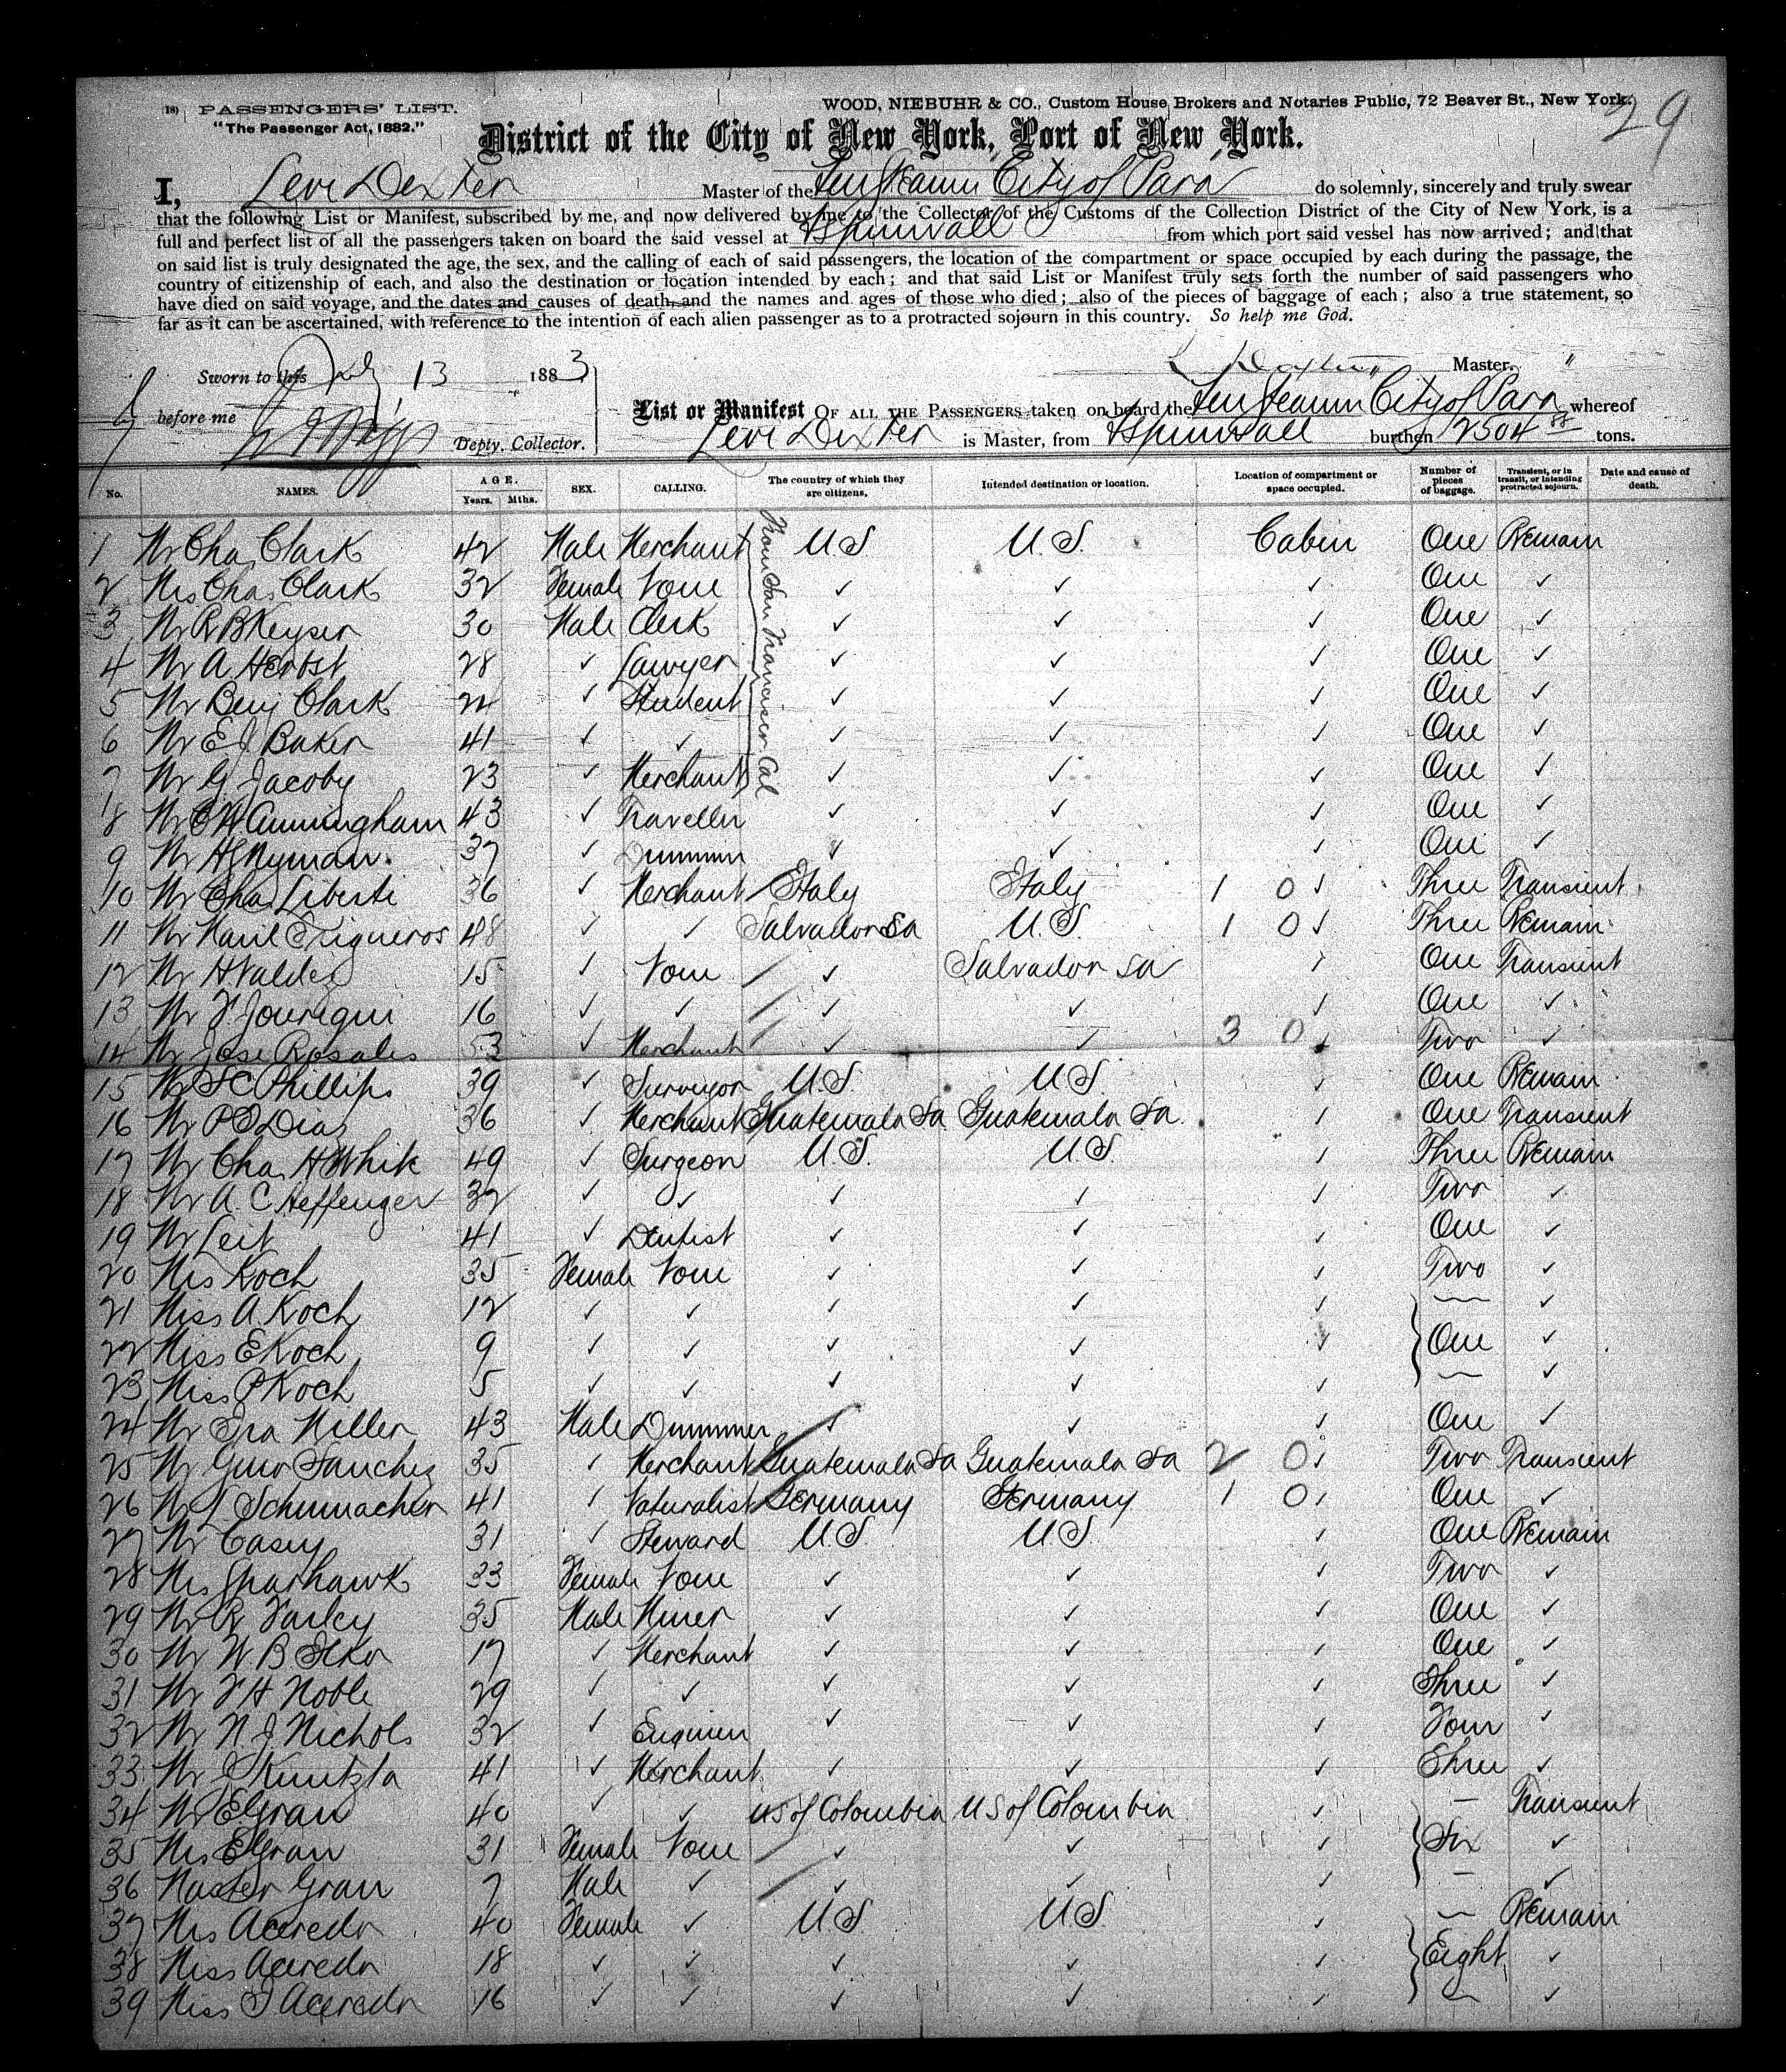 18) PASSENGERS' LIST.
WOOD, NIEBUHR & CO., Custom House Brokers and Notaries Public, 72 Beaver St., New York.
29
"The Passenger Act, 1882."
District of the City of New York, Port of New York.
I, Levi Dexter Master of the City of Para do solemnly, sincerely and truly swear
that the following List or Manifest, subscribed by me, and now delivered by me to the Collector of the Customs of the Collection District of the City of New York, is a
full and perfect list of all the passengers taken on board the said vessel at Aspinwall from which port said vessel has now arrived; and that
on said list is truly designated the age, the sex, and the calling of each of said passengers, the location of the compartment or space occupied by each during the passage, the
country of citizenship of each, and also the destination or location intended by each; and that said List or Manifest truly sets forth the number of said passengers who
have died on said voyage, and the dates and causes of death, and the names and ages of those who died; also of the pieces of baggage of each; also a true statement, so
far as it can be ascertained, with reference to the intention of each alien passenger as to a protracted sojourn in this country. So help me God.
Sworn to this July 13 1883
L Dexter Master.
before me Depty. Collector.
List or Manifest OF ALL THE PASSENGERS taken on board the City of Para whereof
Levi Dexter is Master, from Aspinwall burthen 2504 88 tons.
No. NAMES. AGE. Years. Mths. SEX. CALLING. The country of which they are citizens. Intended destination or location. Location of compartment or space occupied. Number of pieces of baggage. Transient, or in transit, or intending protracted sojourn. Date and cause of death.
From San Francisco Cal
1 Mr Chas Clark 42 Male Merchant U S U.S. Cabin One Remain
2 Mrs Chas Clark 32 Female None ✓ ✓ ✓ One ✓
3 Mr R B Keyser 30 Male Clerk ✓ ✓ ✓ One ✓
4 Mr A Herbst 28 ✓ Lawyer ✓ ✓ ✓ One ✓
5 Mr Benj Clark 24 ✓ Student ✓ ✓ ✓ One ✓
6 Mr E J. Baker 41 ✓ ✓ ✓ ✓ ✓ One ✓
7 Mr G. Jacoby 23 ✓ Merchant ✓ ✓ ✓ One ✓
8 Mr C W Cunningham 43 ✓ Traveller ✓ ✓ ✓ One ✓
9 Mr H Nyman 37 ✓ Drummer ✓ ✓ ✓ One ✓
10 Mr Chas Liberti 36 ✓ Merchant Italy Italy 1 0 ✓ Three Transient
11 Mr Trigueros 48 ✓ ✓ Salvador Sa U.S. 1 0 ✓ Three Remain
12 Mr H Valdez 15 ✓ None ✓ Salvador Sa ✓ One Transient
13 Mr 16 ✓ ✓ ✓ ✓ ✓ One ✓
14 Mr Jose Rosales 53 ✓ Merchant ✓ ✓ 3 0 ✓ Two ✓
15 Mr Phillips 39 ✓ Surveyor U.S. U.S. ✓ One Remain
16 Mr Dias 36 ✓ Merchant Guatemala Sa Guatemala Sa ✓ One Transient
17 Mr Chas H White 49 ✓ Surgeon U.S. U.S. ✓ Three Remain
18 Mr A. C Heffenger 32 ✓ ✓ ✓ ✓ ✓ Two ✓
19 Mr Leit 41 ✓ Dentist ✓ ✓ ✓ One ✓
20 Mrs Koch 35 Female None ✓ ✓ ✓ Two ✓
21 Miss A Koch 12 ✓ ✓ ✓ ✓ ✓ — ✓
22 Miss E Koch 9 ✓ ✓ ✓ ✓ ✓ One ✓
23 Miss P Koch 5 ✓ ✓ ✓ ✓ ✓ — ✓
24 Mr Ira Miller 43 Male Drummer ✓ ✓ ✓ One ✓
25 Mr Sanchez 35 ✓ Merchant Guatemala Sa Guatemala Sa 2 0 ✓ Two Transient
26 Mr Schumacher 41 ✓ Naturalist Germany Germany 1 0 ✓ One ✓
27 Mr Casey 31 ✓ Steward U.S. U.S. ✓ One Remain
28 Mrs Sparhawk 33 Female None ✓ ✓ ✓ Two ✓
29 Mr R Farley 35 Male Miner ✓ ✓ ✓ One ✓
30 Mr W B 17 ✓ Merchant ✓ ✓ ✓ One ✓
31 Mr F H Noble 29 ✓ ✓ ✓ ✓ ✓ Three ✓
32 Mr N. J. Nichols 32 ✓ Engineer ✓ ✓ ✓ Four ✓
33 Mr 41 ✓ Merchant ✓ ✓ ✓ Three ✓
34 Mr E Gran 40 ✓ ✓ US of Colombia US of Colombia ✓ — Transient
35 Mrs E Gran 31 Female None ✓ ✓ ✓ Six ✓
36 Master Gran 7 Male ✓ ✓ ✓ ✓ — ✓
37 Mrs Acevedo 40 Female ✓ U S U.S. ✓ — Remain
38 Miss Acevedo 18 ✓ ✓ ✓ ✓ ✓ Eight ✓
39 Miss J Acevedo 16 ✓ ✓ ✓ ✓ ✓ — ✓